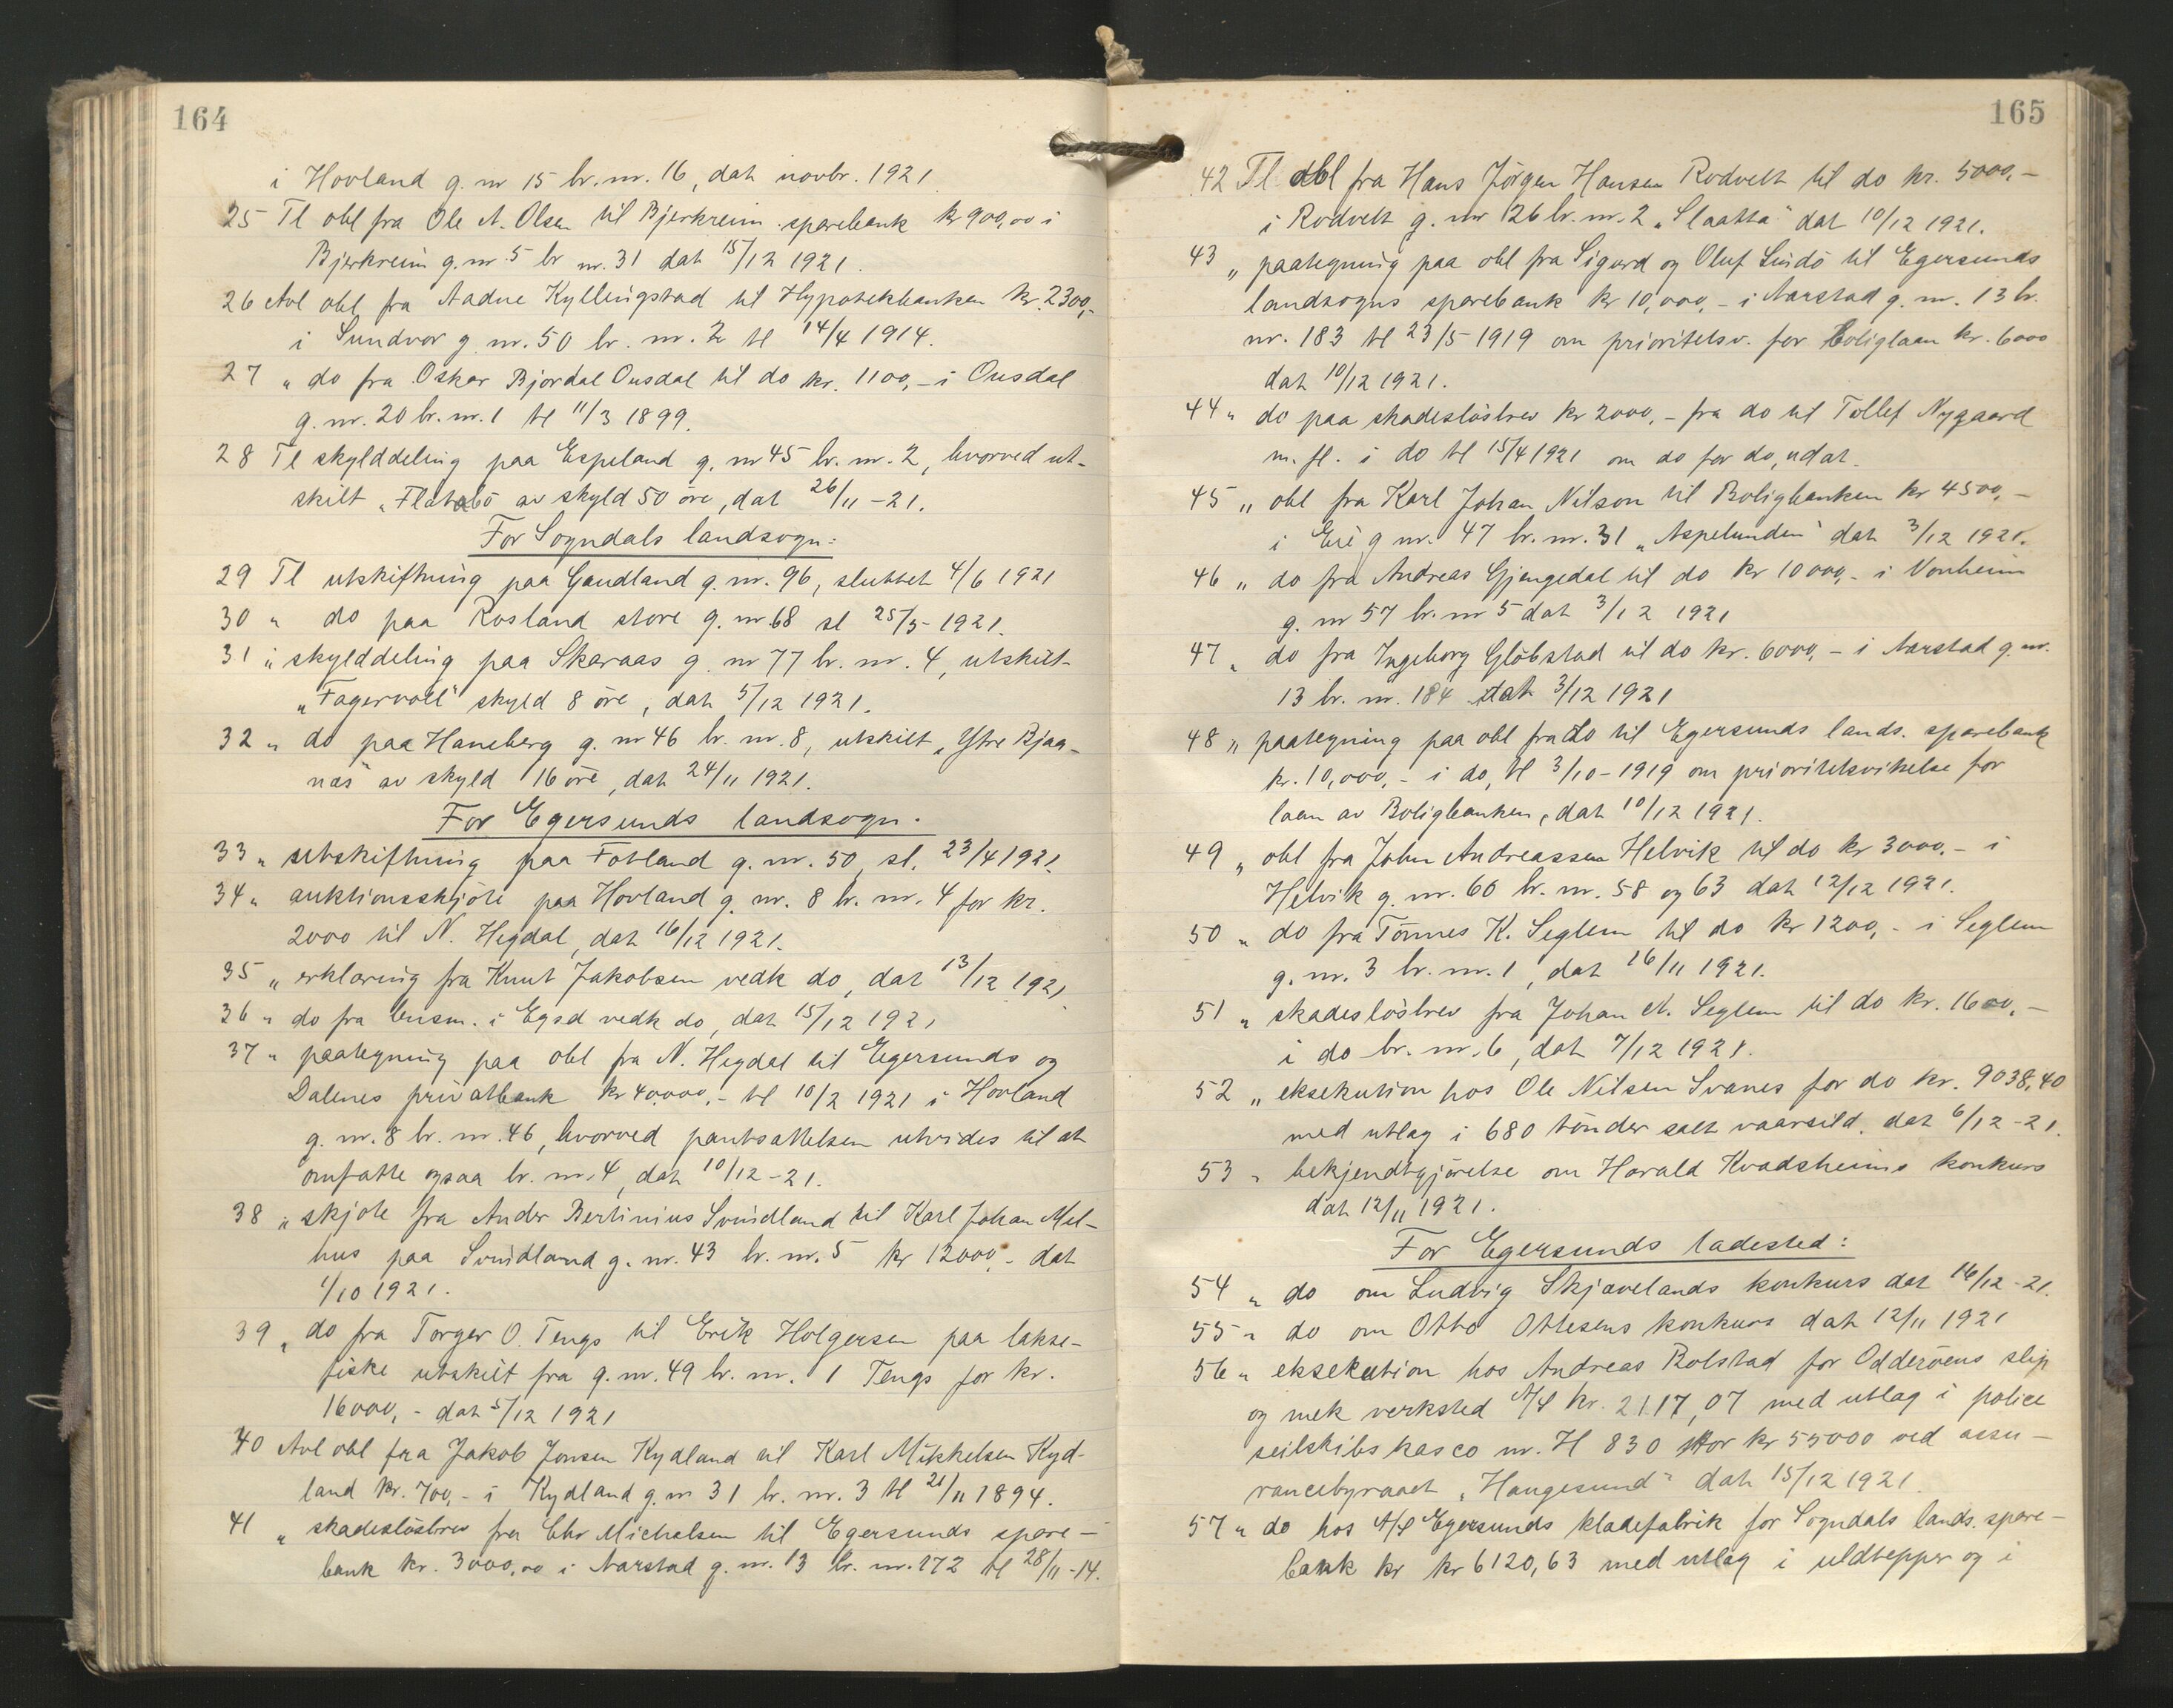 164
i Hovland g. nr 15 br. nr. 16, dat novbr. 1921
25 Tl obl fra Ole A. Olsen til Bjerkreim sparebank kr 900,00 i
Bjerkreim g. nr. 5 br nr. 31 dat 15/12 1921.
26 Avl obl fra Aadne Kyllingstad til Hypotekbanken kr. 2300,-
i Sundvor g. nr. 50 br. nr. 2 tl 14/4 1914.
27 " do fra Oskar Bjordal Ousdal til do kr. 1100,- i Ousdal
g. nr. 20 br. nr. 1 tl 11/3 1899.
28 Tl skylddeling paa Espeland g. nr 45 br. nr. 2, hvorved ut-
skilt „Flatabö av skyld 50 öre, dat 26/11 - 21.
For Sogndals landsogn:
29 Tl utskiftning paa Gandland g. nr. 96, sluttet 4/6 1921
30 " do paa Rosland store g. nr 68 sl 25/5 1921.
31 " skylddeling paa Skaraas g. nr 77 br. nr. 4, utskilt
„Fagervoll" skyld 8 öre, dat 5/12 1921.
32 " do paa Haneberg g. nr 46 br. nr. 8, utskilt „Ytre Rjaa-
næs" av skyld 16 öre, dat 24/11 1921.
For Egersunds landsogn.
33 " utskiftning paa Fotland g. nr. 50, sl. 23/4 1921.
34 " auktionsskjöte paa Hovland g. nr. 8 br. nr. 4 for kr.
2000 til N. Hegdal, dat 16/12 1921.
35 " erklæring fra Knut Jakobsen vedk do, dat 13/12 1921
36 " do fra lensm. i Egsd vedk do, dat 15/12 1921
37 " paategning paa obl fra N. Hegdal til Egersunds og
Dalenes privatbank kr 40,000,- tl 10/2 1921 i Hovland
g. nr. 8 br. nr. 46, hvorved pantsættelsen utvides til at
omfatte ogsaa br. nr. 4, dat 10/12 - 21.
38 " skjöte fra Ander Bertinius Svindland til Karl Johan Mel-
hus paa Svindland g. nr. 43 br. nr. 5 kr 12000,- dat
1/10 1921.
39 " do fra Torger O. Tengs til Erik Holgersen paa lakse-
fiske utskilt fra g. nr. 49 br. nr. 1 Tengs for kr.
16000,- dat 5/12 1921
40 Avl obl fra Jakob Jonsen Kydland til Karl Mikkelsen Kyd-
land kr. 700,- i Kydland g. nr 31 br. nr. 3 tl 21/11 1894.
41 " skadeslösbrev fra Chr Michelsen til Egersunds spare-
bank kr. 3000,00 i Aarstad g. nr. 13 br. nr. 172 tl 28/11 - 14.
165
42 Tl obl fra Hans Jörgen Hansen Rodvelt til do kr. 5000,-
i Rodvelt g. nr 26 br. nr. 2 „Slaatta" dat 10/12 1921.
43 " paategning paa obl fra Sigurd og Oluf Lindö til Egersunds
landsogns sparebank kr 10,000,- i Aarstad g. nr. 13 br.
nr. 183 tl 23/5 1919 om prioritetsv. for boliglaan kr. 6000
dat 10/12 1921.
44 " do paa skadeslösbrev kr 2000,- fra do til Tollef Nygaard
m. fl. i do tl 15/4 1921 om do for do, udat.
45 " obl fra Karl Johan Nilson til Boligbanken kr 4500,-
i Eie g nr. 47 br. nr. 31 „Aspelunden" dat 3/12 1921.
46 " do fra Andreas Gjengedal til do kr 10000,- i Vonheim
g. nr 57 br. nr 5 dat 3/12 1921
47 " do fra Ingeborg Glöbstad til do kr. 6000,- i Aarstad g. nr.
13 br. nr. 184 dat 3/12 1921
48 " paategning paa obl fra do til Egersunds lands. sparebank
kr. 10,000,- i do, tl 3/10 - 1919 om prioritetsvikelse for
laan av Boligbanken, dat 10/12 1921.
49 " obl fra John Andreassen Helvik til do kr 3000,- i
Helvik g. nr. 60 br. nr. 58 og 63 dat 12/12 1921.
50 " do fra Tönnes K. Seglem til do kr 1200,- i Seglem
g. nr. 3 br. nr. 1, dat 16/11 1921.
51 " skadeslösbrev fra Johan A. Seglem til do kr. 1600,-
i do br. nr. 6, dat 7/12 1921.
52 " eksekution hos Ole Nilsen Svanes for do kr. 9038,40
med utlæg i 680 tönder salt vaarsild. dat 6/12 - 21.
53 " bekjendtgjörelse om Harald Kvadsheims konkurs
dat 12/11 1921.
For Egersunds ladested:
54 " do om Ludvig Skjævelands konkurs dat 16/12 - 21.
55 " do om Otto Ottesens konkurs dat 12/11 1921
56 " eksekution hos Andreas Rolstad for Odderöens slip
og mek verksted A/S kr. 2117,07 med utlæg i police
seilskibskasco nr. H 830 stor kr 55000 ved assu-
rancebyraaet „Haugesund" dat 15/12 1921.
57 " do hos A/S Egersunds klædefabrik for Sogndals lands. spare-
bank kr kr 6120,63 med utlæg i uldtepper og i